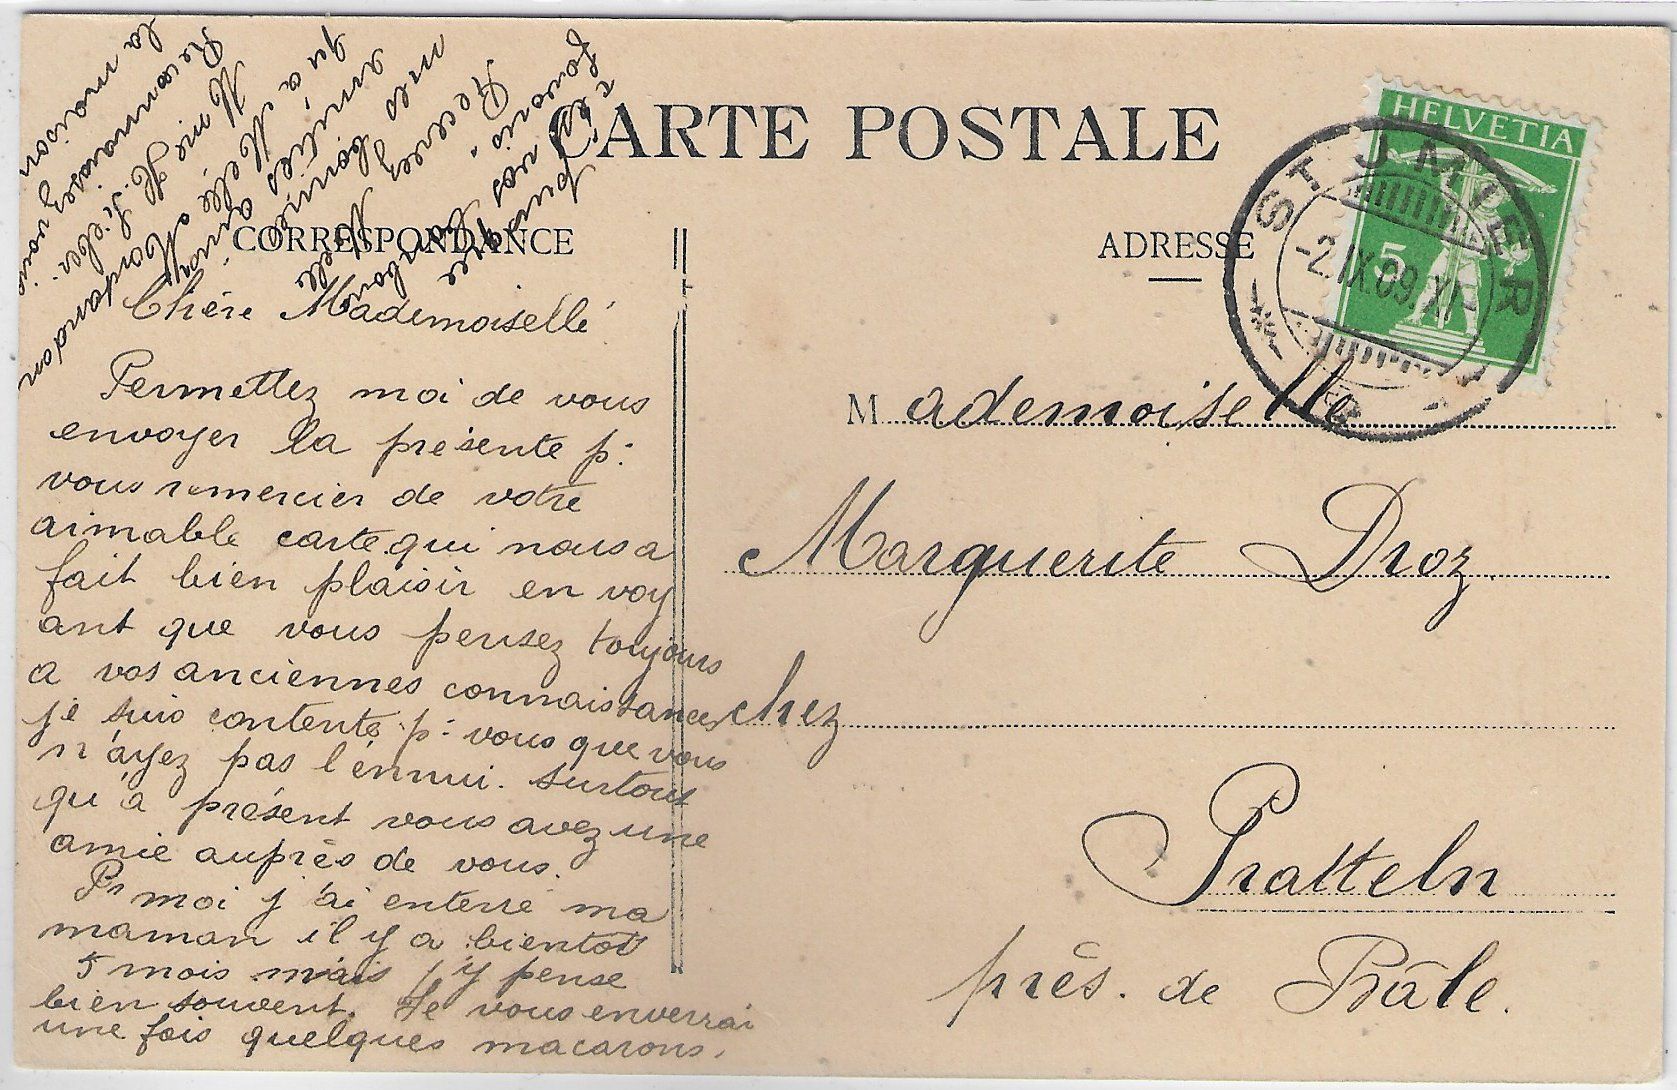 CARTE POSTALE
CORRESPONDANCE
ADRESSE
HELVETIA
5
ST. IMIER
-2.IX.09.XI-
Chère Mademoiselle
Permettez moi de vous
envoyer la présente p:
vous remercier de votre
aimable carte qui nous a
fait bien plaisir en voy
ant que vous pensez toujours
a vos anciennes connaissances
je suis contente p: vous que vous
n'ayez pas l'ennui. surtout
qu'à présent vous avez une
amie auprès de vous.
Pr moi j'ai enterré ma
maman il y a bientot
5 mois mais j'y pense
bien souvent. Je vous enverrai
une fois quelques macarons.
Recevez
mes bonnes
amitiés ainsi
qu'a Melle
Mme H.
Reconnaissez vous
la maison
Mademoiselle
Marguerite Droz
chez
Pratteln
près. de Bâle.